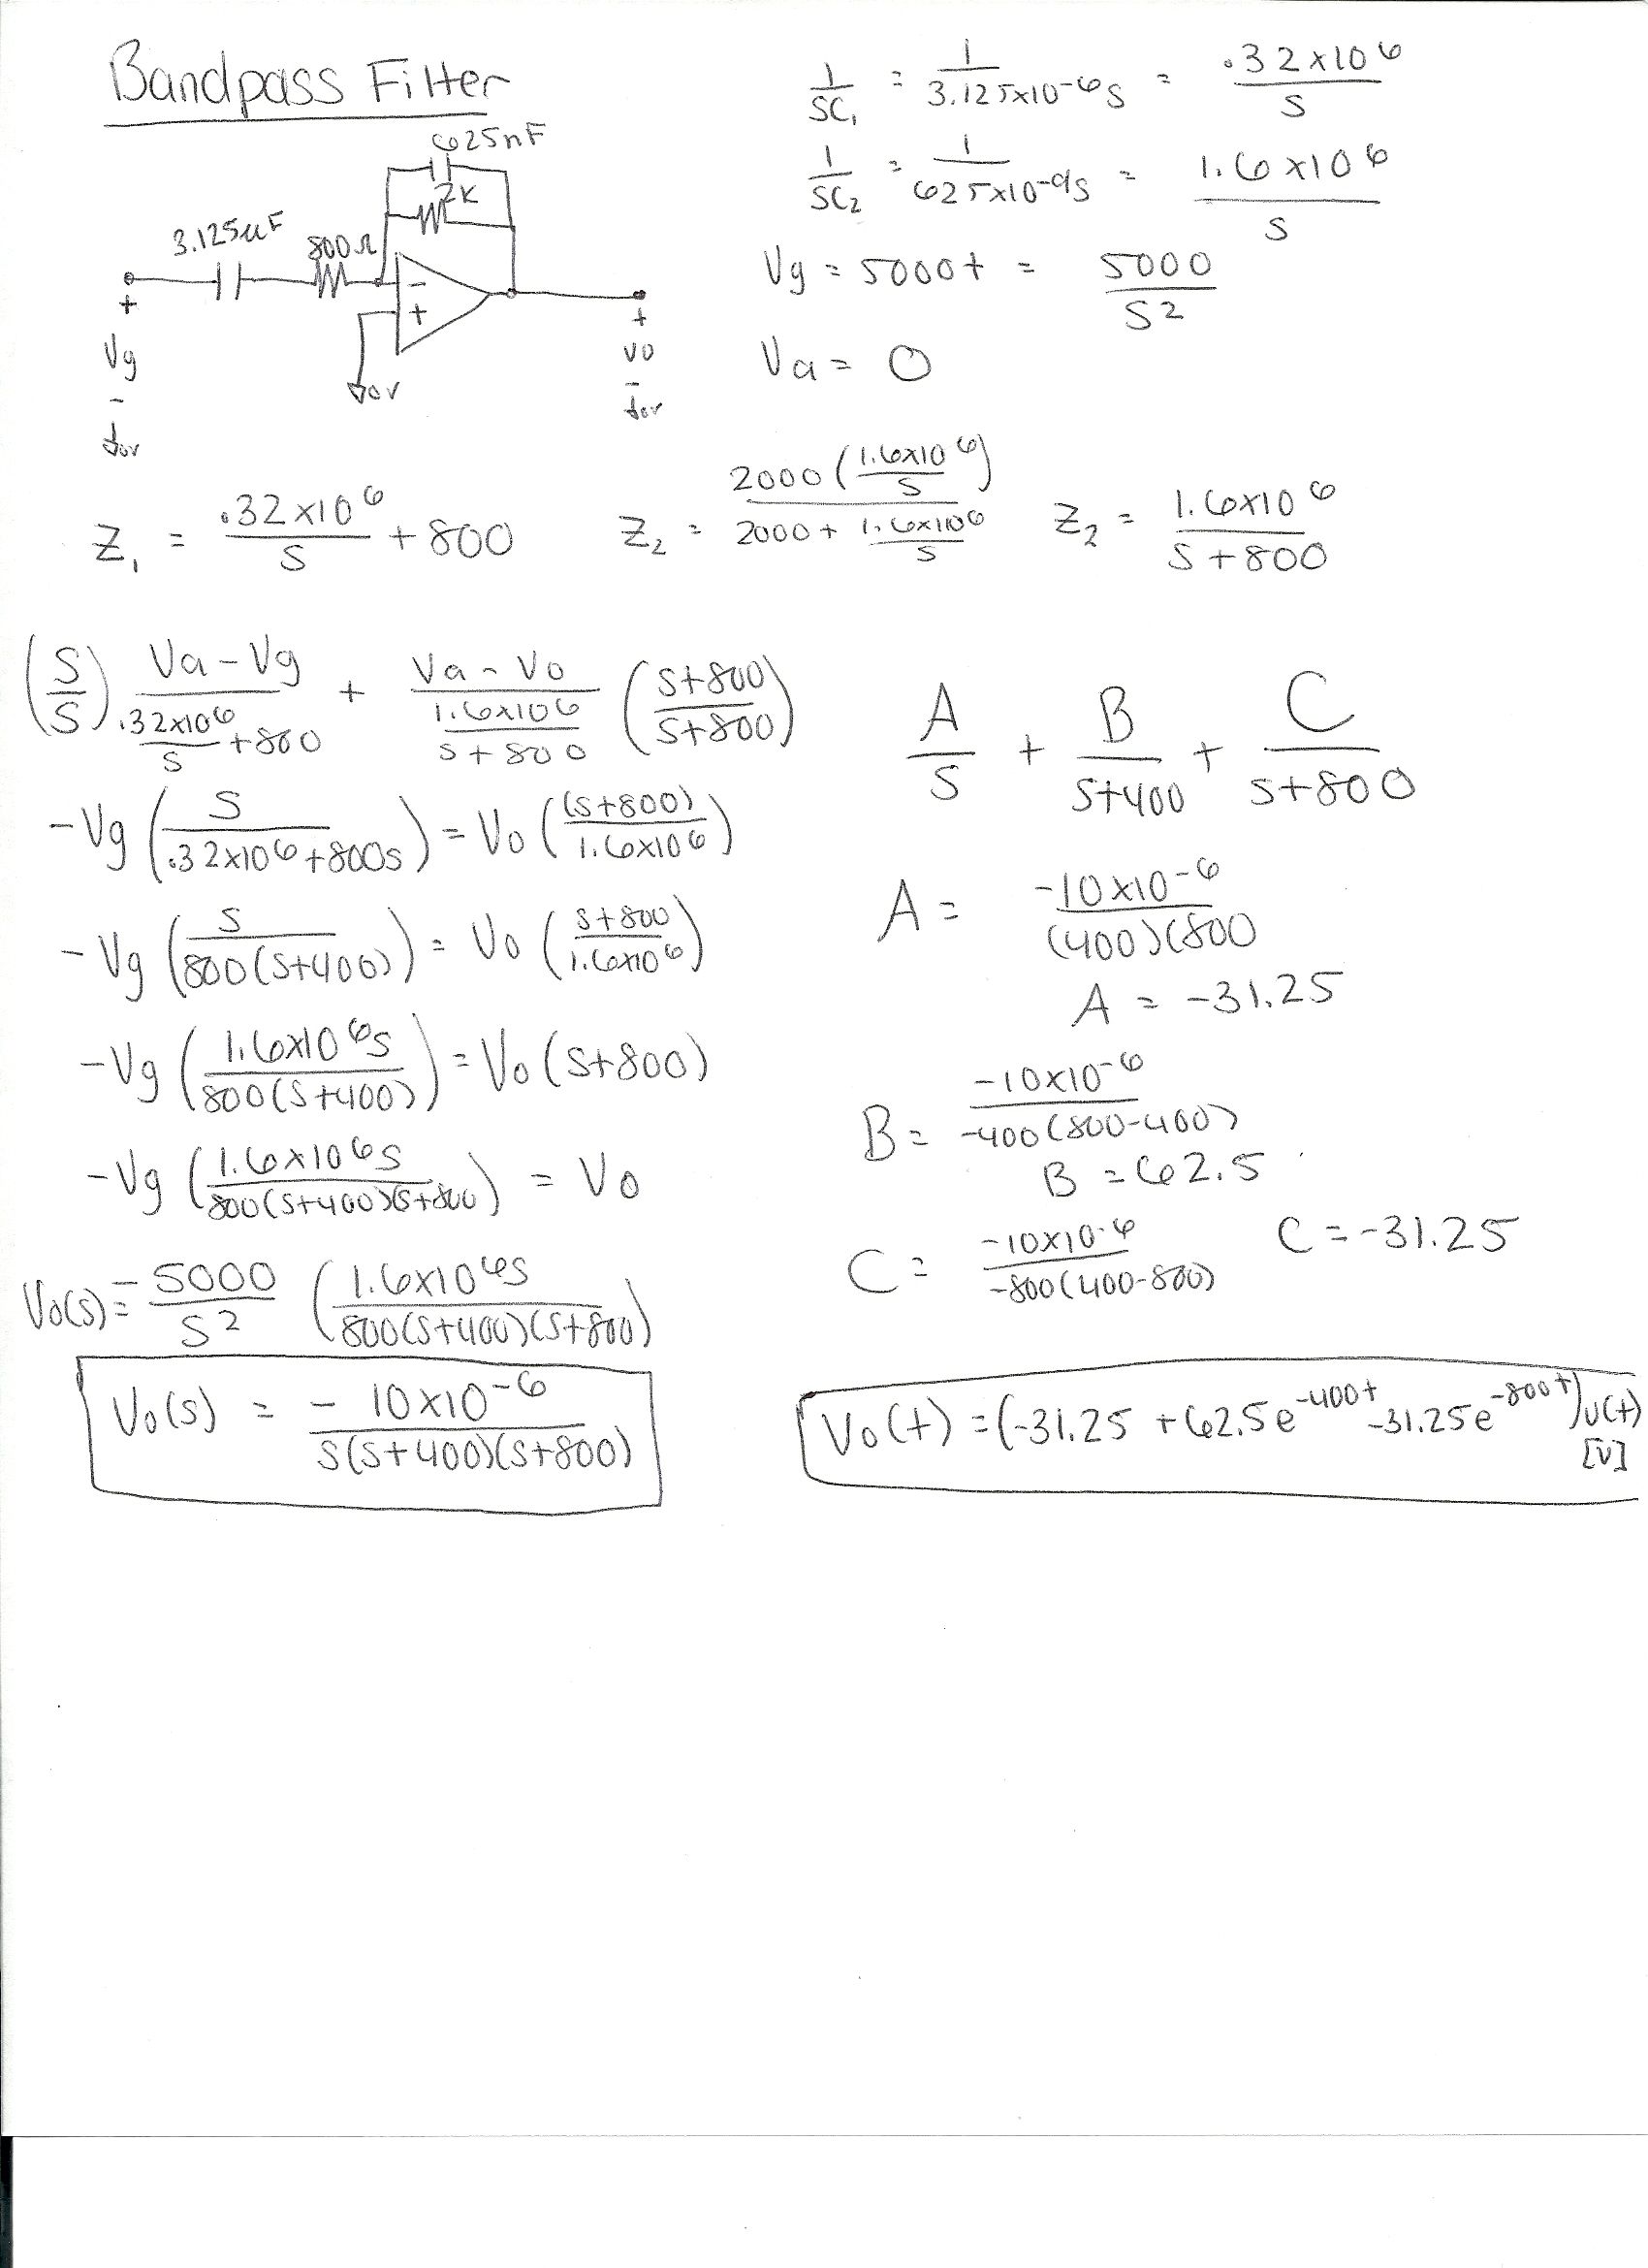 Bandpass Filter
625nF
2K
3.125uF
800Ω
-
+
+
Vg
-
0V
0V
+
Vo
-
0V
1/SC1 = 1/3.125x10-6S = .32x10^6/S
1/SC2 = 1/625x10-9S = 1.6x10^6/S
Vg = 5000t = 5000/S2
Va = 0
Z1 = .32x10^6/S + 800
Z2 = 2000(1.6x10^6/S)/2000 + 1.6x10^6/S
Z2 = 1.6x10^6/S+800
(S/S) Va-Vg/.32x10^6/S +800 + Va-Vo/1.6x10^6/S+800 (S+800/S+800)
-Vg (S/.32x10^6+800S) = Vo ((S+800)/1.6x10^6)
-Vg (S/800(S+400)) = Vo (S+800/1.6x10^6)
-Vg (1.6x10^6S/800(S+400)) = Vo (S+800)
-Vg (1.6x10^6S/800(S+400)(S+800)) = Vo
Vo(s) = -5000/S2 (1.6x10^6S/800(S+400)(S+800))
Vo(s) = -10x10^-6/S(S+400)(S+800)
A/S + B/S+400 + C/S+800
A = -10x10^-6/(400)(800
A = -31.25
B = -10x10^-6/-400(800-400)
B = 62.5
C = -10x10^-6/-800(400-800) C = -31.25
Vo(t) = (-31.25 + 62.5e^-400t - 31.25e^-800t)u(t)
[V]